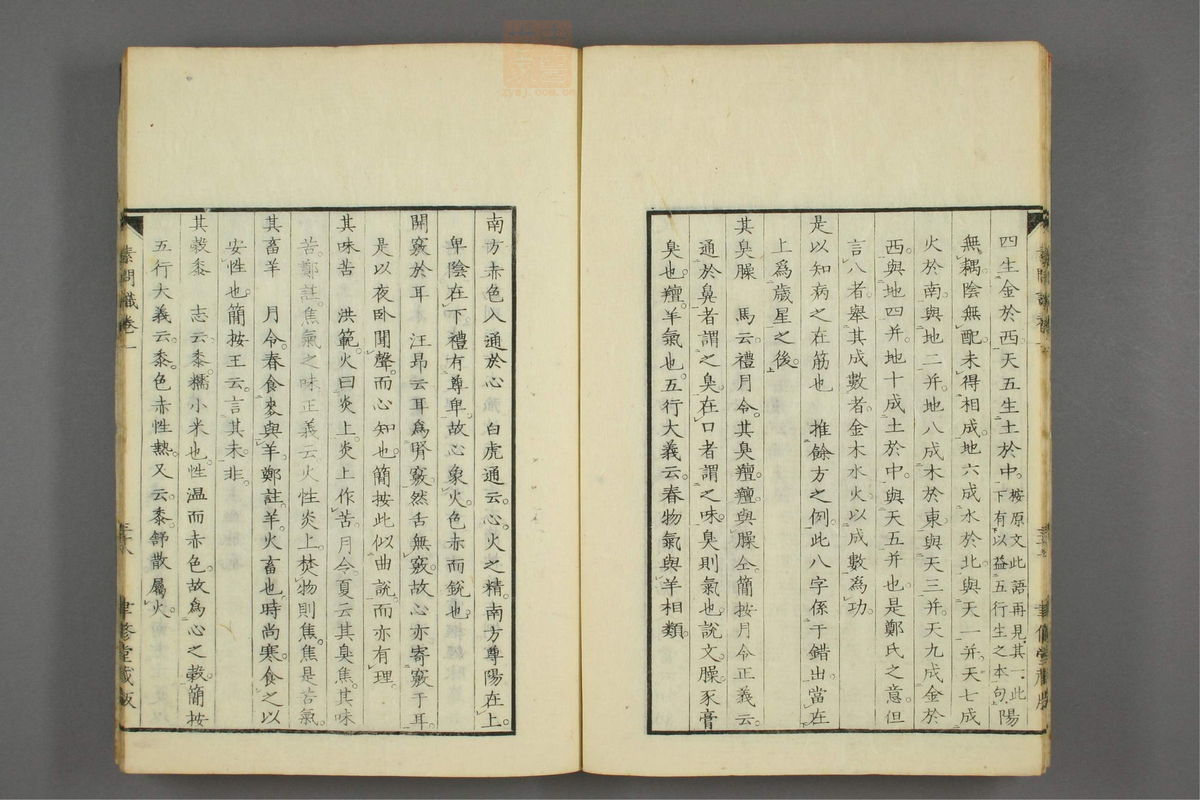 四生金於西天五生土於中按原文此語再見其一此下有以益五行生之本句陽
無耦陰無配未得相成地六成水於北與天一并天七成
火於南與地二并地八成木於東與天三并天九成金於
西與地四并地十成土於中與天五并也是鄭氏之意但
言八者舉其成數者金木水火以成數為功
是以知病之在筋也 推餘方之例此八字係于錯出當在
上爲歲星之後
其臭臊 馬云禮月令其臭羶羶與臊仝簡按月令正義云
通於鼻者謂之臭在口者謂之味臭則氣也說文臊豕膏
臭也羶羊氣也五行大義云春物氣與羊相類
南方赤色入通於心 白虎通云心火之精南方尊陽在上
卑陰在下禮有尊卑故心象火色赤而銳也
開竅於耳 汪昂云耳爲腎竅然舌無竅故心亦寄竅于耳
是以夜卧聞聲而心知也簡按此似曲說而亦有理
其味苦 洪範火曰炎上炎上作苦月令夏云其臭焦其味
苦鄭註焦氣之味正義云火性炎上焚物則焦焦是苦氣
其畜羊 月令春食麥與羊鄭註羊火畜也時尚寒食之以
安性也簡按王云言其未非
其穀黍 志云黍糯小米也性温而赤色故爲心之穀簡按
五行大義云黍色赤性熱又云黍舒散屬火
素問識卷一
三十八
聿修堂藏版